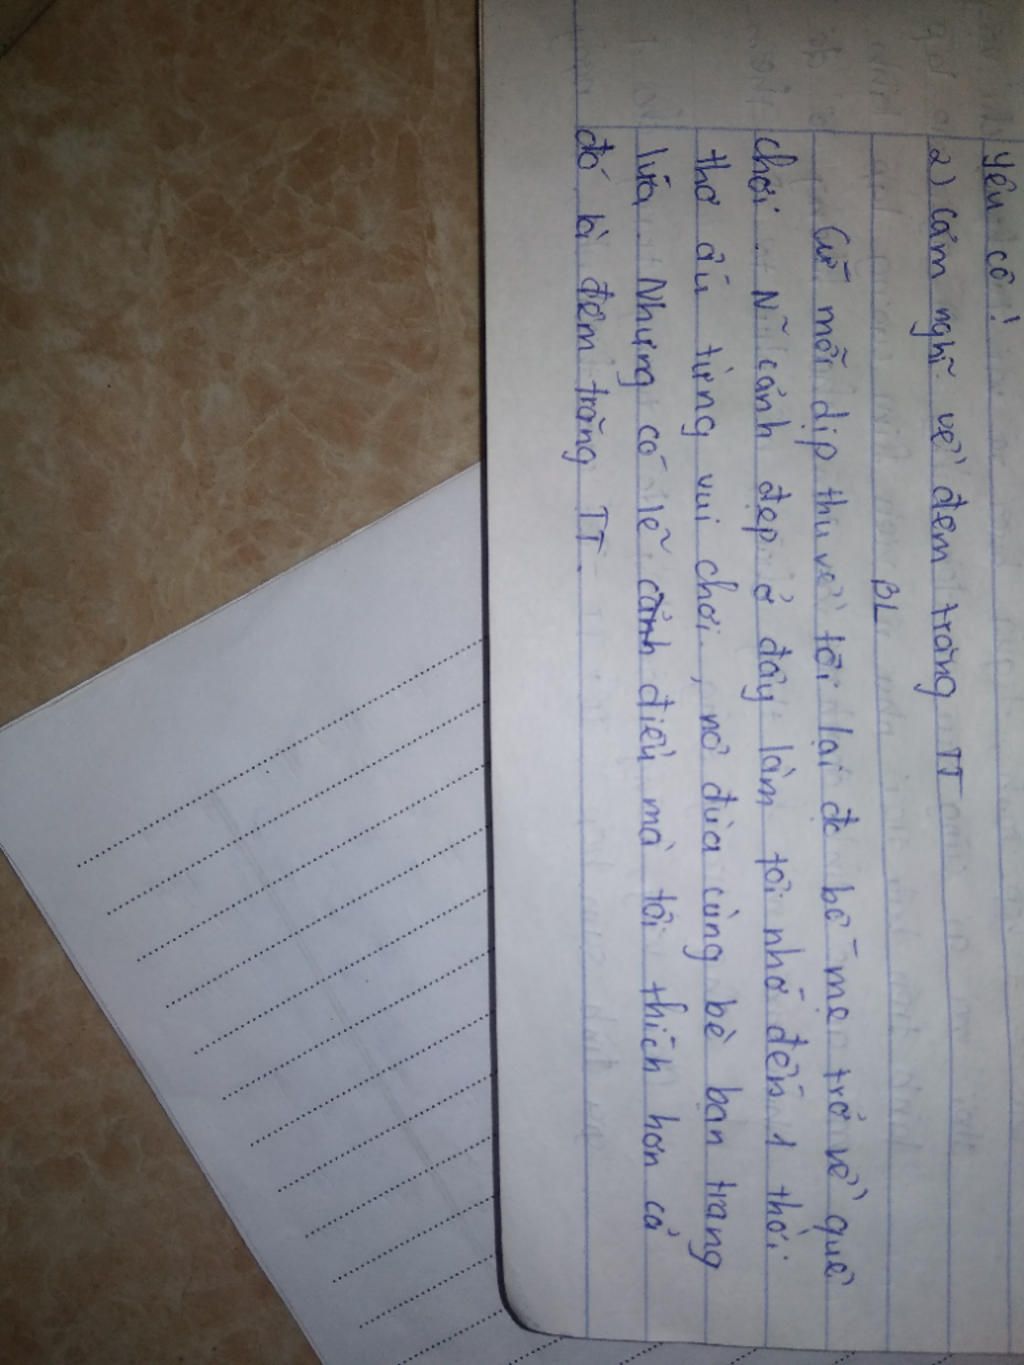 yêu cô!
2) Cảm nghĩ về đêm trăng TT
BL
Cứ mỗi dịp thu về tôi lại đc bố mẹ trở về quê
chơi. N~ cảnh đẹp ở đây làm tôi nhớ đến 1 thời
thơ ấu từng vui chơi, nô đùa cùng bè bạn trang
lứa. Nhưng có lẽ cảnh điều mà tôi thích hơn cả
đó là đêm trăng TT.